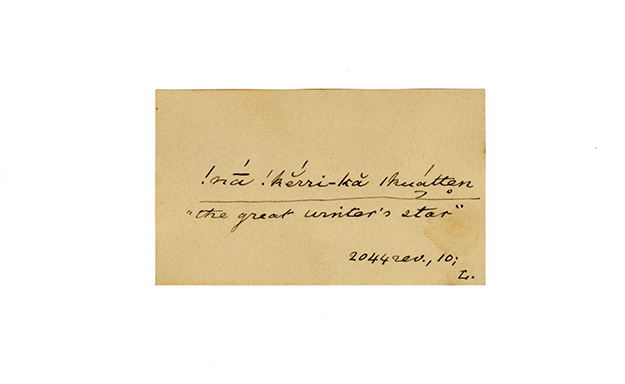 !nā́ !kĕ́rri-kă ǀkuátten̥
"the great winter's star"
2044 rev., 10;
L.